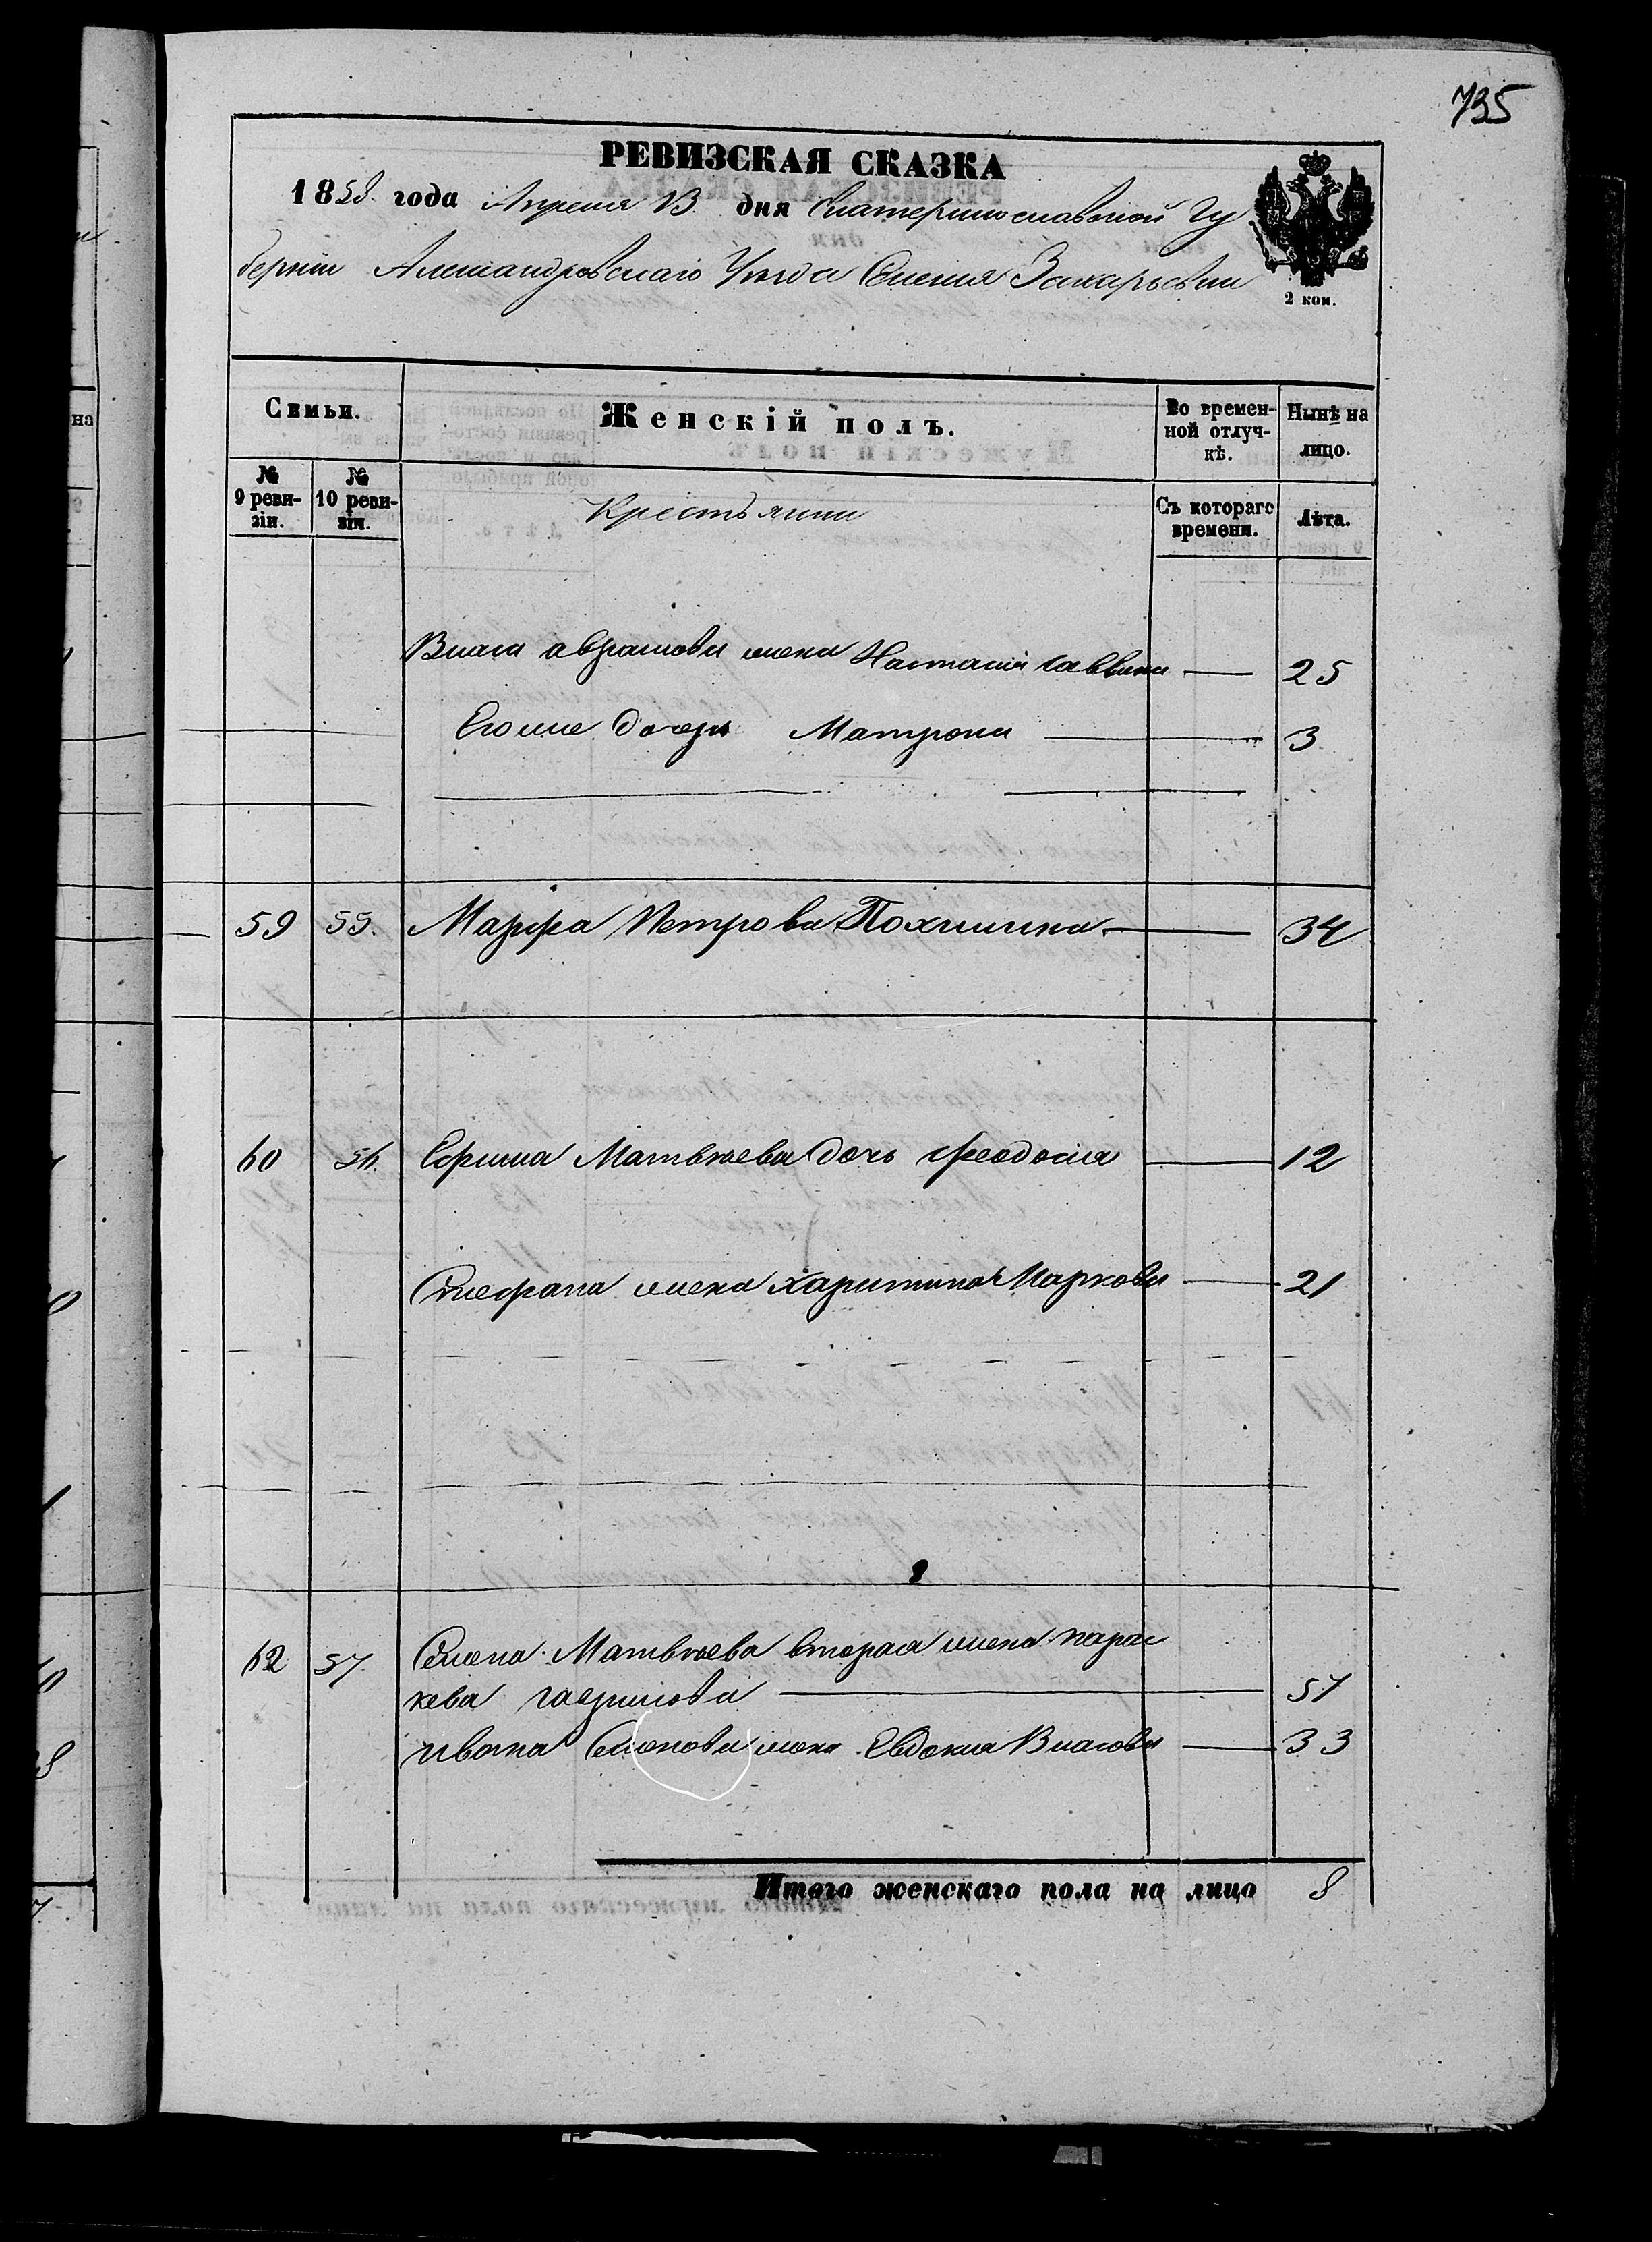 735
РЕВИЗСКАЯ СКАЗКА
1858 года Апреля 13 дня Екатеринославской Гу
берніи Александровскаго Уезда Селенія Захарьевки
2 коп.
Семьи.
Женскій полъ.
Во времен-
ной отлуч-
кѣ.
Нынѣ на
лицо.
№
9 реви-
зіи.
№
10 реви-
зіи.
Крестьянии
Съ котораго
времени.
Лѣта.
Власа Аврамова жена Настасия Саввина — 25
Егоже дочерь Матрона — 3
59 55. Марфа Петрова Похилина — 34
60 56. Ефима Матвѣева дочь Феодосия — 12
Стефана жена Харитина Маркова — 21
62 57 Семена Матвѣева вторая жена Парас
кева гаврилова — 57
Ивана Семенова жена Евдокия Власова — 33
Итого женскаго пола на лицо 8